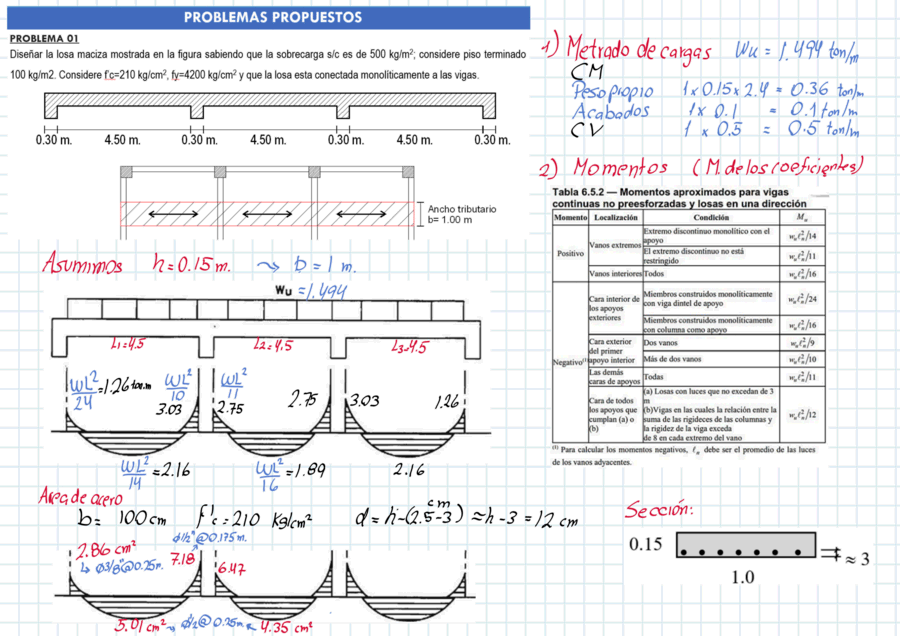 PROBLEMAS PROPUESTOS
PROBLEMA 01
Diseñar la losa maciza mostrada en la figura sabiendo que la sobrecarga s/c es de 500 kg/m²; considere piso terminado
100 kg/m2. Considere f'c=210 kg/cm², fy=4200 kg/cm² y que la losa esta conectada monolíticamente a las vigas.
0.30 m. 4.50 m. 0.30 m. 4.50 m. 0.30 m. 4.50 m. 0.30 m.
Ancho tributario
b= 1.00 m
Asumimos h=0.15 m. ⤳ b=1 m.
Wu =1.494
L1=4.5 L2=4.5 L3=4.5
WL²/24 =1.26 ton.m WL²/10 3.03 WL²/11 2.75 2.75 3.03 1.26
WL²/14 =2.16 WL²/16 =1.89 2.16
Area de acero
b= 100 cm f'c=210 Kg/cm² d=h-(2.5-3) cm ≈h-3=12 cm
φ1/2"@0.175m.
2.86 cm² 7.18 6.47
↳ φ3/8"@0.25m.
5.01 cm² φ1/2@0.25m 4.35 cm²
1) Metrado de cargas Wu = 1.494 ton/m
CM
Peso propio 1x0.15x2.4 = 0.36 ton/m
Acabados 1x 0.1 = 0.1 ton/m
CV 1 x 0.5 = 0.5 ton/m
2) Momentos (M. de los coeficientes)
Tabla 6.5.2 — Momentos aproximados para vigas
continuas no preesforzadas y losas en una dirección
Momento Localización Condición Mu
Positivo
Vanos extremos
Extremo discontinuo monolítico con el
apoyo
wuℓn²/14
El extremo discontinuo no está
restringido
wuℓn²/11
Vanos interiores Todos wuℓn²/16
Negativo(1)
Cara interior de
los apoyos
exteriores
Miembros construidos monolíticamente
con viga dintel de apoyo
wuℓn²/24
Miembros construidos monolíticamente
con columna como apoyo
wuℓn²/16
Cara exterior
del primer
apoyo interior
Dos vanos wuℓn²/9
Más de dos vanos wuℓn²/10
Las demás
caras de apoyos
Todas wuℓn²/11
Cara de todos
los apoyos que
cumplan (a) o
(b)
(a) Losas con luces que no excedan de 3
m
(b)Vigas en las cuales la relación entre la
suma de las rigideces de las columnas y
la rigidez de la viga exceda
de 8 en cada extremo del vano
wuℓn²/12
(1) Para calcular los momentos negativos, ℓn debe ser el promedio de las luces
de los vanos adyacentes.
Sección:
0.15
≈ 3
1.0